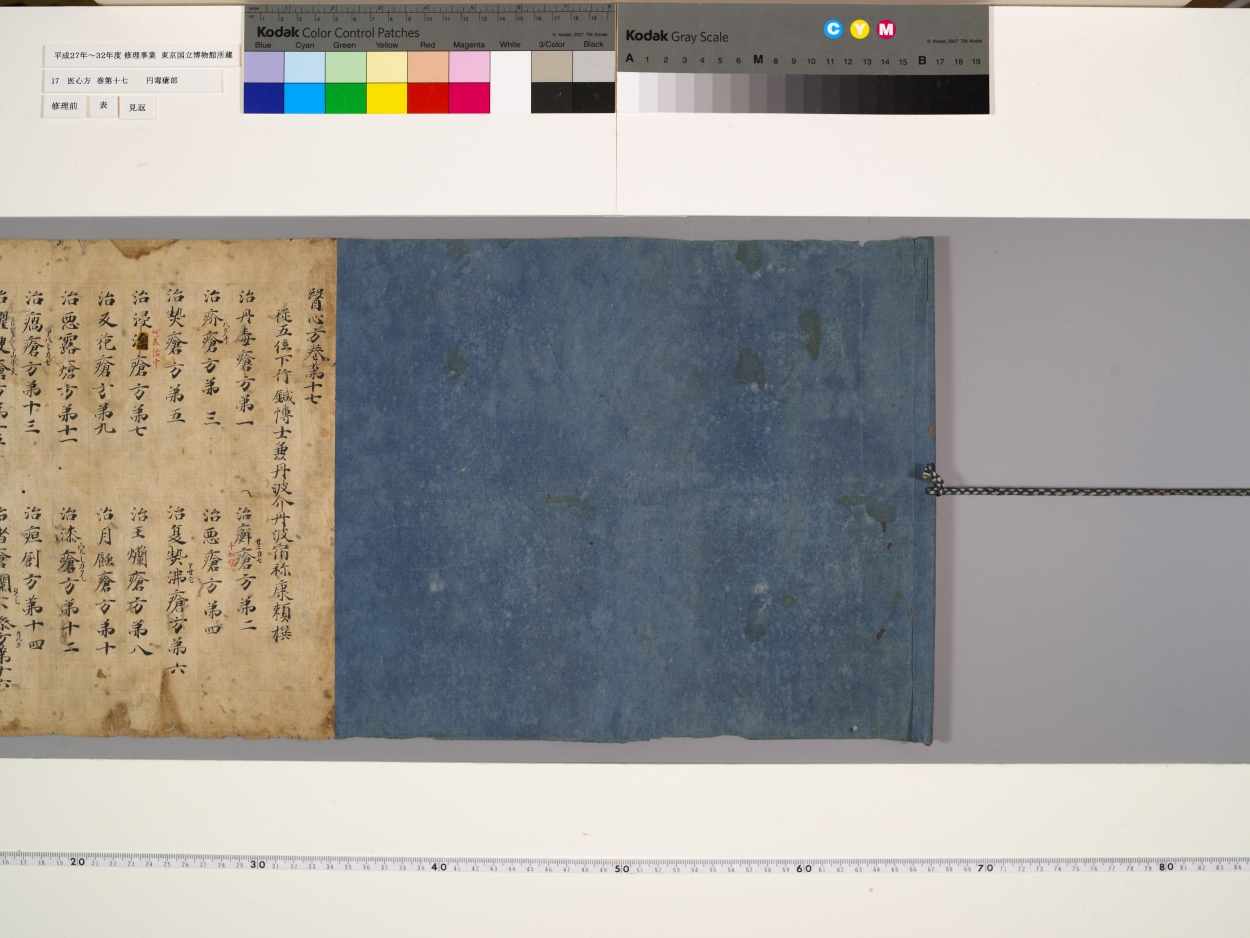 平成27年〜32年度 修理事業 東京国立博物館所蔵
17 医心方 巻第十七 円毒瘡部
修理前
表
見返
Kodak Color Control Patches
© Kodak, 2007 TM: Kodak
Blue Cyan Green Yellow Red Magenta White 3/Color Black
Kodak Gray Scale
C Y M
© Kodak, 2007 TM: Kodak
A 1 2 3 4 5 6 M 8 9 10 11 12 13 14 15 B 17 18 19
醫心方巻第十七
従五位下行鍼博士兼丹波介丹波宿祢康頼撰
治丹毒瘡方第一
治癬瘡方第二
治疥瘡方第三
治悪瘡方第四
治熱瘡方第五
治夏熱沸瘡方第六
治浸瘡方第七
治王爛瘡方第八
治反花瘡方第九
治月蝕瘡方第十
治悪露瘡方第十一
治漆瘡方第十二
治瘑瘡方第十三
治疽創方第十四
20 30 40 50 60 70 80